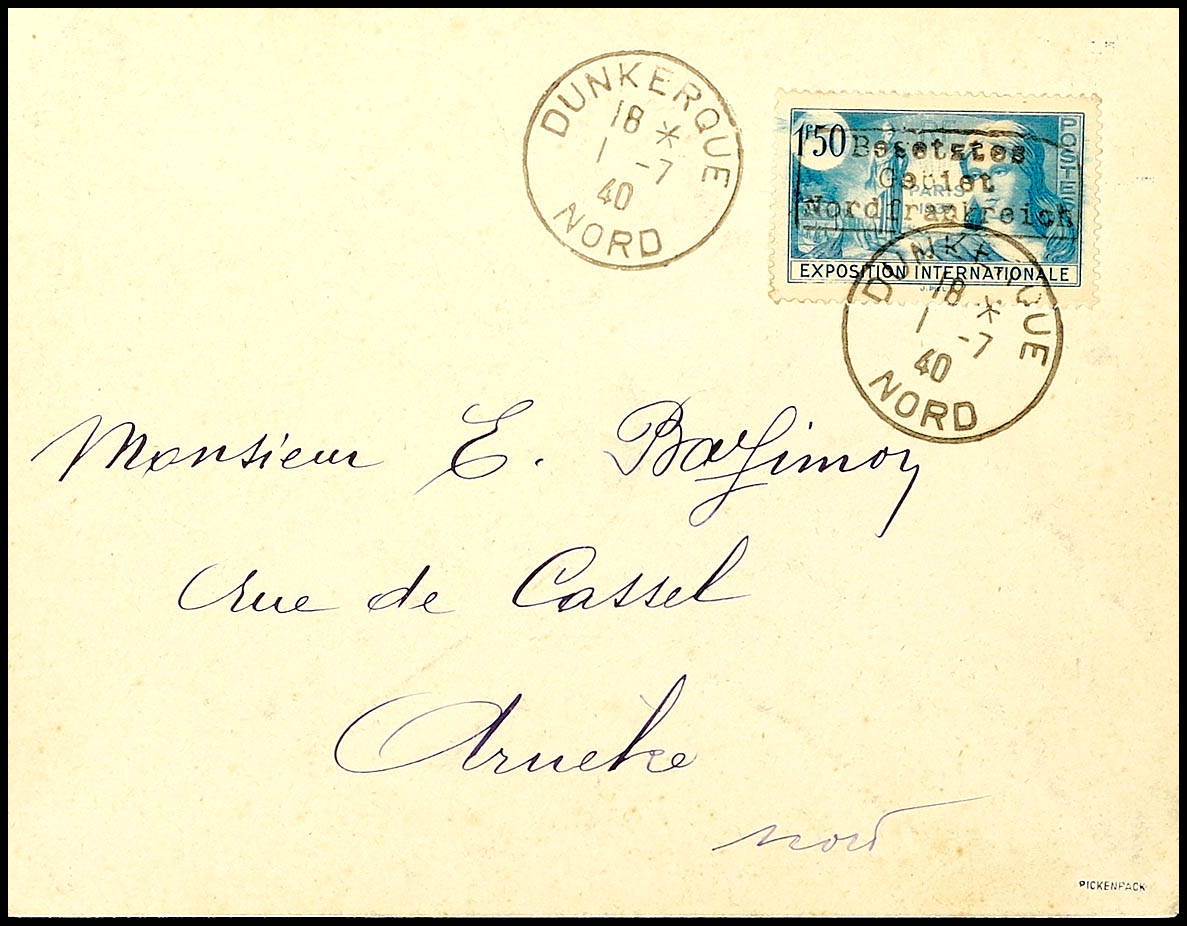 DUNKERQUE
18 *
1 -7
40
NORD
POSTES
1F50
Besetztes
Gebiet
PARIS
1937
Nordfrankreich
EXPOSITION INTERNATIONALE
DUNKERQUE
18 *
1 -7
40
NORD
Monsieur E.
rue de Cassel
Arneke
Nord
PICKENPACK